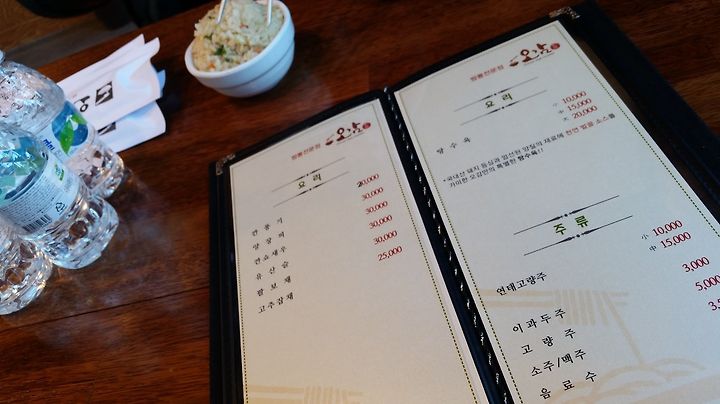 짬뽕전문점 오감
요리
깐풍기 20,000
양장피 30,000
깐쇼새우 30,000
유산슬 30,000
팔보채 30,000
고추잡채 25,000
짬뽕전문점 오감
요리
탕수육 小 10,000
中 15,000
大 20,000
*국내산 돼지 등심과 엄선된 양질의 재료에 천연 발효 소스를
가미한 오감만의 특별한 탕수육!!
주류
연태고량주 小 10,000
中 15,000
이과두주 3,000
고량주 5,000
소주/맥주
음료수